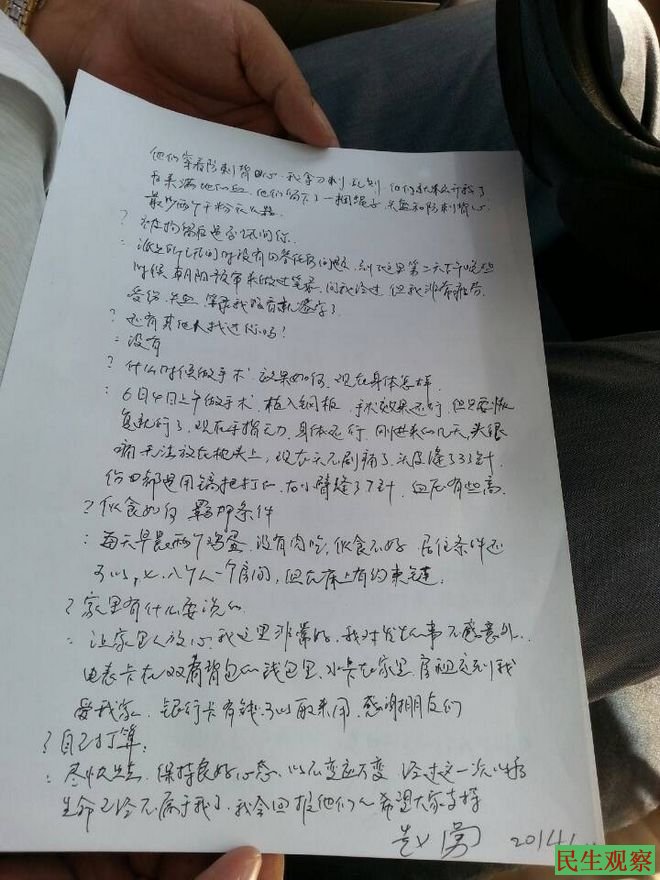 他们穿着防刺背心.我拿刀刺
满地的血.他们留下了一捆绳子.头盔和防刺背心
最少两个干粉灭火器
? 被拘留后是否讯问你.
: 派出所讯问时没有回答任何问题.到这里第二天下午吃饭
时候.朝阳 来做过笔录.问我经过.但我非常疲劳.
受伤.失血.笔录我没有就签字了
? 还有其他人找过你吗!
: 没有
? 什么时候做手术.效果如何.现在身体怎样.
: 6月4日上午做手术.植入钢板.手术效果还行.但只要恢
复就行了.现在手指无力.身体还行.刚进来的几天,头很
痛无法放在枕头上,现在头不剧痛了.头皮缝了33针.
伤口都是用镐把打的.右小臂缝了7针.血压有些高.
? 饮食如何 羁押条件
: 每天早晨两个鸡蛋.没有肉吃.饮食不好.居住条件还
可以,七.八个人一个房间,但在床上有约束链.
? 家里有什么要说的
: 让家里人放心,我这里非常好.我对发生的事不感意外.
电表卡在双肩背包的钱包里.水卡在家里.房租交到我
爱我家.银行卡有钱.可以取来用.感谢朋友们
? 自己打算:
: 尽快出去.保持良好心态.以不变应万变.经过这一次
生命已经不属于我了.我会回报他们的希望大家支持
2014
民生观察